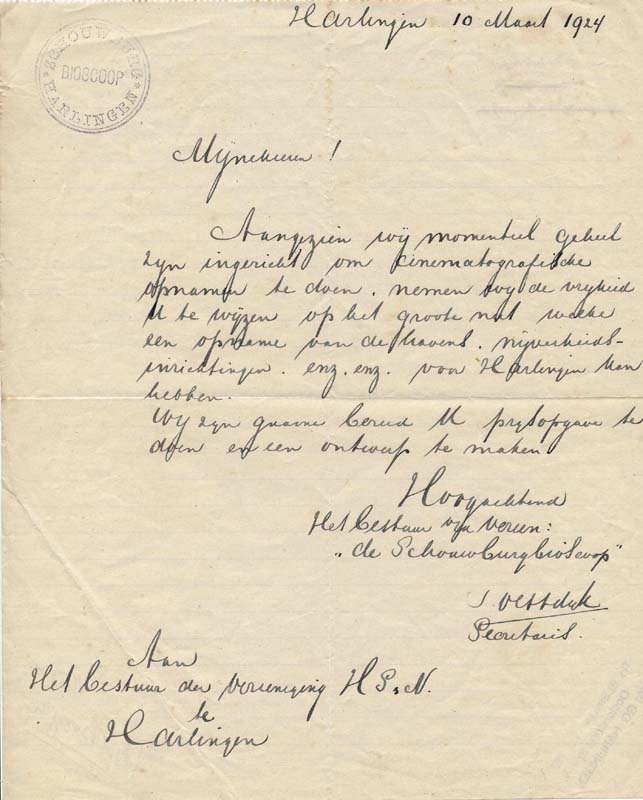 Harlingen 10 Maart 1924
SCHOUWBURG
BIOSCOOP
HARLINGEN
Mijneheeren!
Aangezien wij momenteel geheel
zijn ingericht om cinematografische
opnamen te doen, nemen wij de vrijheid
U te wijzen op het groote nut welke
een opname van de havens, nijverheids-
inrichtingen, enz. enz. voor Harlingen kan
hebben.
Wij zijn gaarne bereid U prijsopgave te
doen en een ontwerp te maken
Hoogachtend
Het Bestuur v/d Vereen:
"de Schouwburgbioscoop"
S Vestdijk
Secretaris.
Aan
Het Bestuur der Vereeniging H S. N.
te
Harlingen